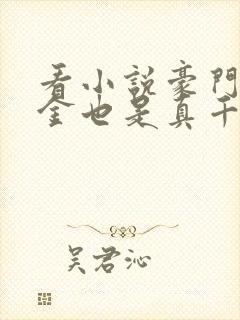 看小說豪門
金也是真千
吴君沁